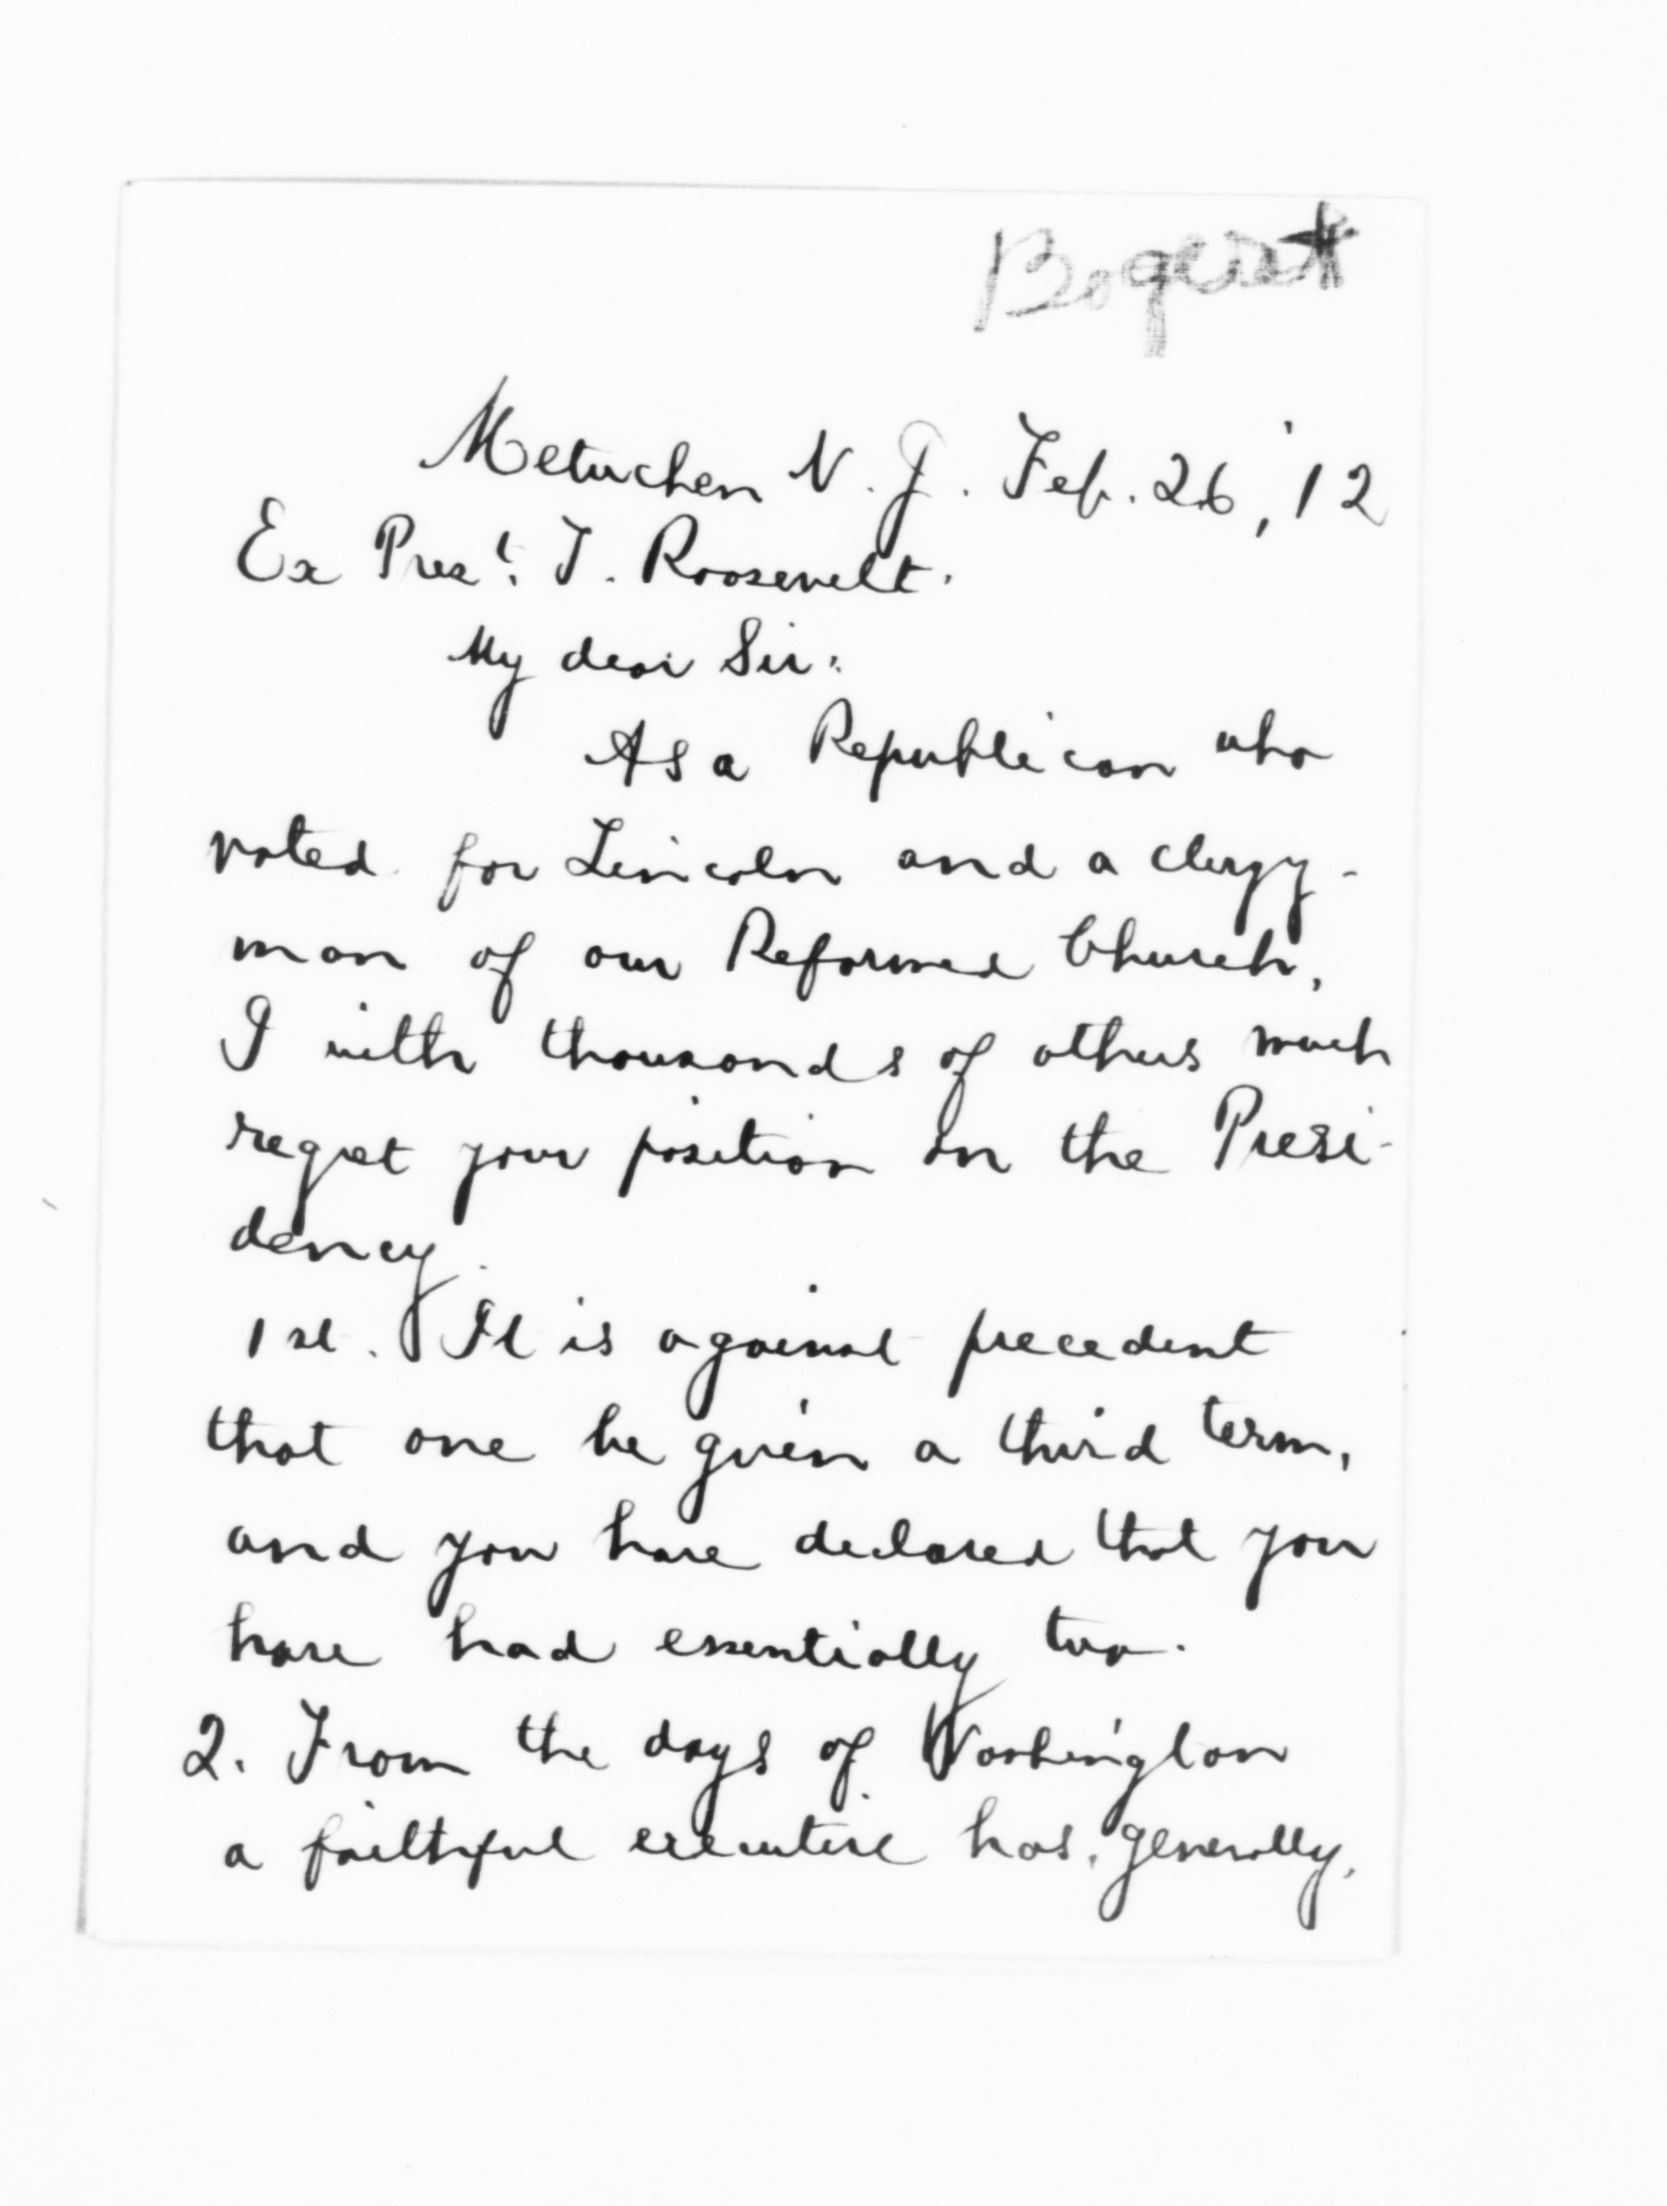 Bogert
Metuchen N. J. Feb. 26, '12
Ex Prest. T. Roosevelt.
My dear Sir:
As a Republican who
voted for Lincoln and a clergy-
man of our Reformed Church,
I with thousands of others much
regret your position on the Presi-
dency.
1st. It is against precedent
that one be given a third term,
and you have declared that you
have had essentially two.
2. From the days of Washington
a faithful executive has, generally,